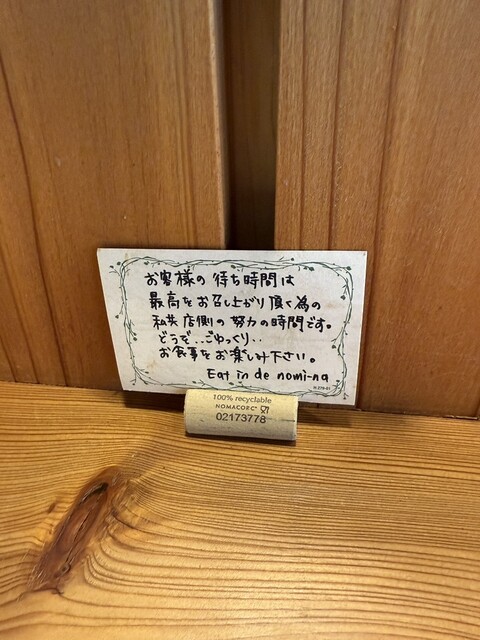 お客様の待ち時間は
最高をお召し上がり頂く為の
私共店側の努力の時間です。
どうぞ‥ごゆっくり‥
お食事をお楽しみ下さい。
Eat in de nomi-na
H-279-01
100% recyclable
NOMACORC
02173778